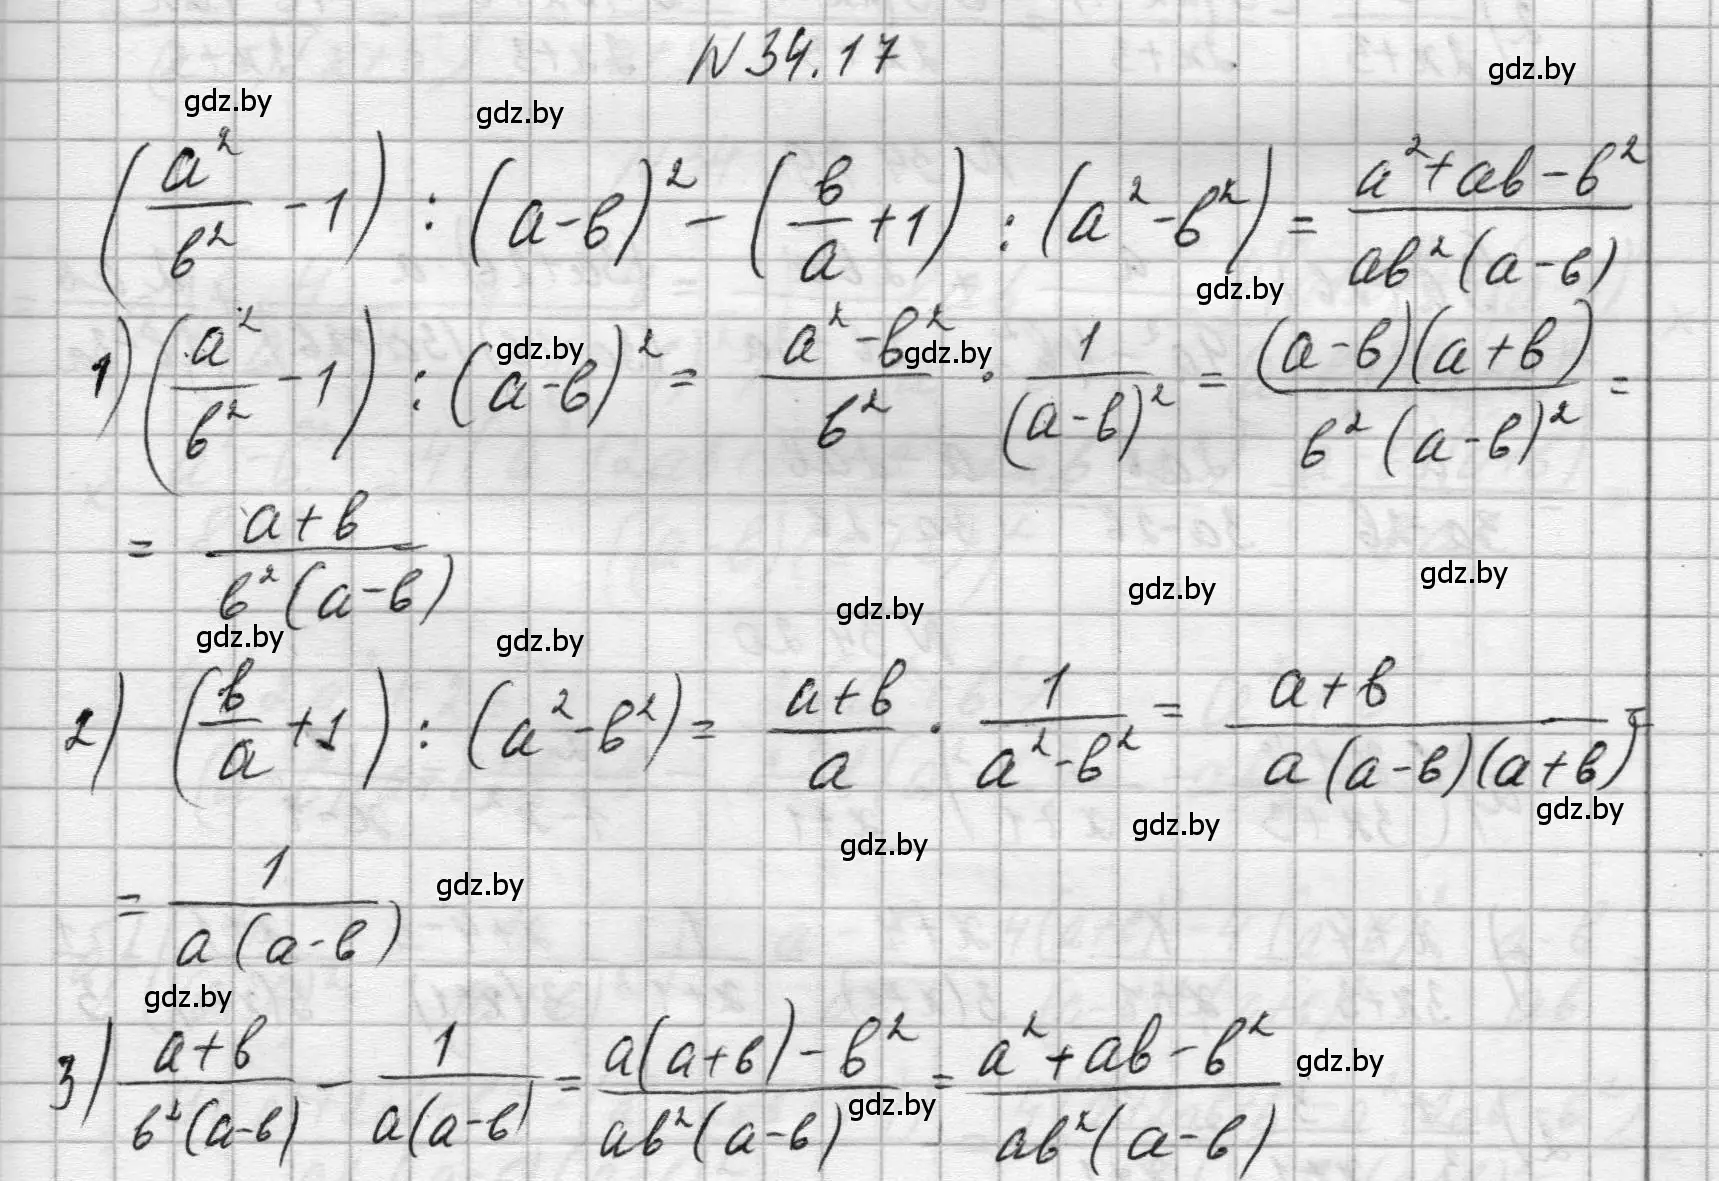 N34.17
gdz.by gdz.by gdz.by
(a²/в² - 1) : (a-в)² - (в/a + 1) : (a² - в²) = (a² + aв - в²)/(aв²(a-в))
gdz.by
1) (a²/в² - 1) : (a-в)² = (a² - в²)/в² · 1/(a-в)² = ((a-в)(a+в))/(в²(a-в)²) =
gdz.by gdz.by
= (a+в)/(в²(a-в))
gdz.by gdz.by gdz.by gdz.by gdz.by
2) (в/a + 1) : (a² - в²) = (a+в)/a · 1/(a² - в²) = (a+в)/(a(a-в)(a+в)) =
gdz.by gdz.by gdz.by
= 1/(a(a-в))
gdz.by
gdz.by
3) (a+в)/(в²(a-в)) - 1/(a(a-в)) = (a(a+в) - в²)/(aв²(a-в)) = (a² + aв - в²)/(aв²(a-в))
gdz.by gdz.by